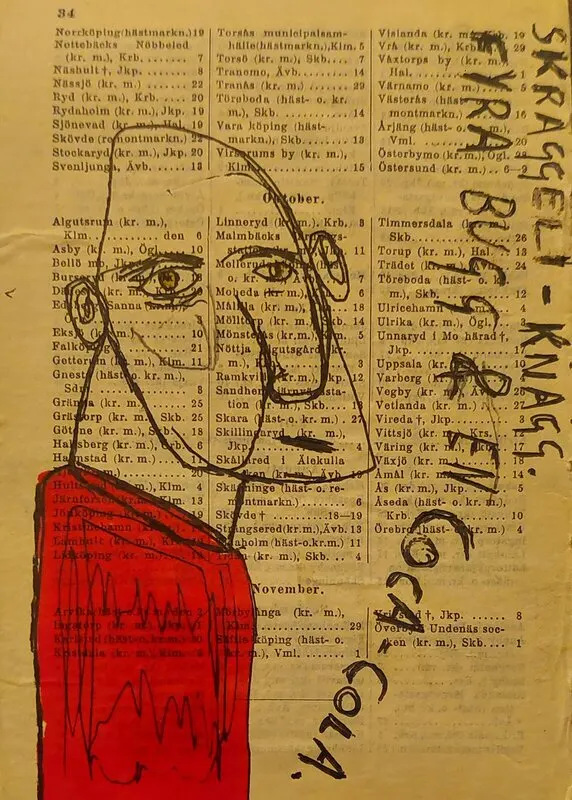 34
Norrköping(hästmarkn.) 19
Nottebäcks Nöbbeled
(kr. m.), Krb. 7
Näshult †, Jkp. 8
Nässjö (kr. m.) 22
Ryd (kr. m.), Krb. 20
Rydaholm (kr. m.), Jkp. 19
Sjönevad (kr. m.), Hal. 9
Skövde (remontmarkn.) 22
Stockaryd (kr. m.), Jkp. 20
Svenljunga, Ävb. 13
Torsås municipalsam-
hälle(hästmarkn.),Klm. 5
Torsö (kr. m.), Skb. 7
Tranemo, Ävb. 14
Tranås (kr. m.) 29
Töreboda (häst- o. kr.
m.), Skb. 14
Vara köping (häst-
markn.), Skb. 13
Virserums by (kr. m.),
Klm. 15
Vislanda (kr. m.), Krb. 19
Vrå (kr. m.), Krb. 29
Växtorps by (kr. m.),
Hal. 1
Värnamo (kr. m.) 5
Västerås (häst-
montmarkn.) 16
Årjäng (häst- o. kr. m.),
Vml. 20
Österbymo (kr. m.), Ögl. 28
Östersund (kr. m.) 6—9
October.
Algutsrum (kr. m.),
Klm. den 6
Asby (kr. m.), Ögl. 10
Bello
Eksjö (kr. m.) 10
Falköping 21
Getterum (kr. m.), Klm. 11
Gnesta (häst- o. kr. m.),
Sdm. 8
Gränna (kr. m.) 25
Grästorp (kr. m.), Skb. 25
Götene (kr. m.), Skb. 18
Halmstad (kr. m.) 11
Hultsfred (kr. m.), Klm. 4
Järnforsen(kr.m.),Klm. 13
Jönköping (kr. m.)
Kristinehamn (kr. m.)
Lamhult (kr. m.)
Lidköping (kr. m.)
Linneryd (kr. m.), Krb. 3
Malmbäcks
Mellerud
o. kr.
Moheda (kr. m.) 6
Målilla (kr. m.) 18
Mölltorp (kr. m.), Skb. 14
Mönsterås (kr. m.), Klm. 5
Nöttja
Ramkvilla (kr. m.), Jkp. 12
Skara (häst- o. kr. m.) 27
Skillingaryd (kr. m.),
Jkp. 4
Skänninge (häst- o. re-
montmarkn.) 6
Skövde † 18—19
Strängsered(kr.m.),Ävb. 13
(häst-o.kr.m.) 11
Tidan (kr. m.), Skb. 4
Timmersdala (kr. m.),
Skb. 26
Torup (kr. m.), Hal. 13
Trädet (kr. m.), Ävb. 24
Töreboda (häst- o. kr.
m.), Skb. 12
Ulricehamn (kr. m.) 4
Ulrika (kr. m.), Ögl.
Unnaryd i Mo härad †,
Jkp. 17
Uppsala (kr. m.)
Varberg (kr. m.)
Vegby (kr. m.), Ävb. 26
Vetlanda (kr. m.) 27
Vireda †, Jkp. 7
Vittsjö (kr. m.), Krs. 12
Väring (kr. m.), Skb. 17
Växjö (kr. m.)
Åmål (kr. m.) 14
Ås (kr. m.), Jkp. 5
Åseda (häst- o. kr. m.),
Krb. 10
Örebro (häst- o. kr. m.) 4
November.
Arvika (häst- o. kr. m.) den 2
Ingatorp (kr. m.), Jkp.
Karlstad (häst- o. kr. m.)
Kristdala (kr. m.), Klm.
Mörbylånga (kr. m.),
Klm. 29
Säffle köping (häst- o.
kr. m.), Vml. 1
†, Jkp. 8
Överby i Undenäs soc-
ken (kr. m.), Skb. 1
SKRAGGELI-KNAGG.
FYRA BUGG & EN COCA-COLA.